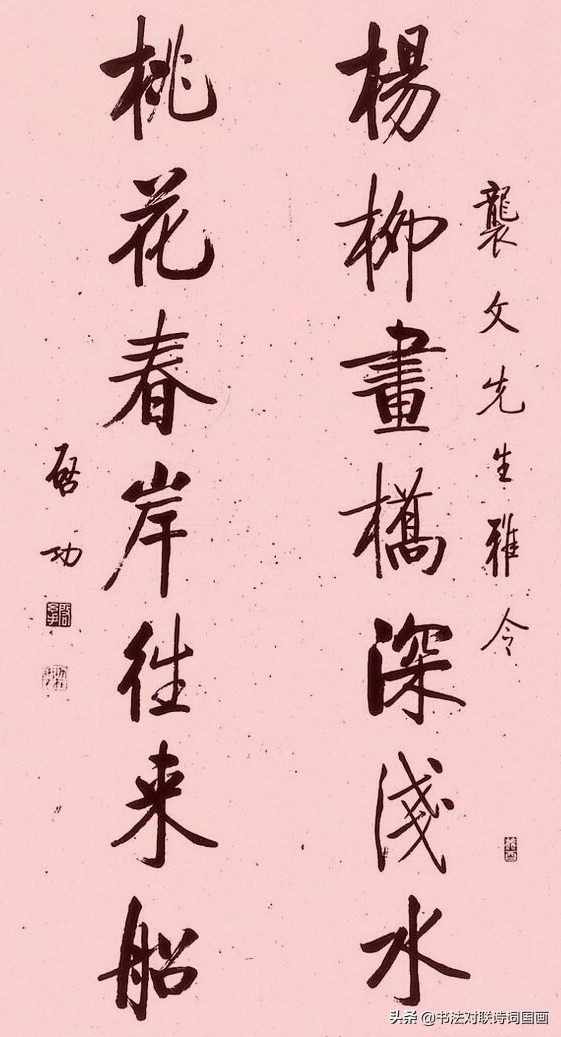 襲文先生雅令
楊柳畫橋深淺水
桃花春岸往来船
啓功
头条 @书法对联诗词国画